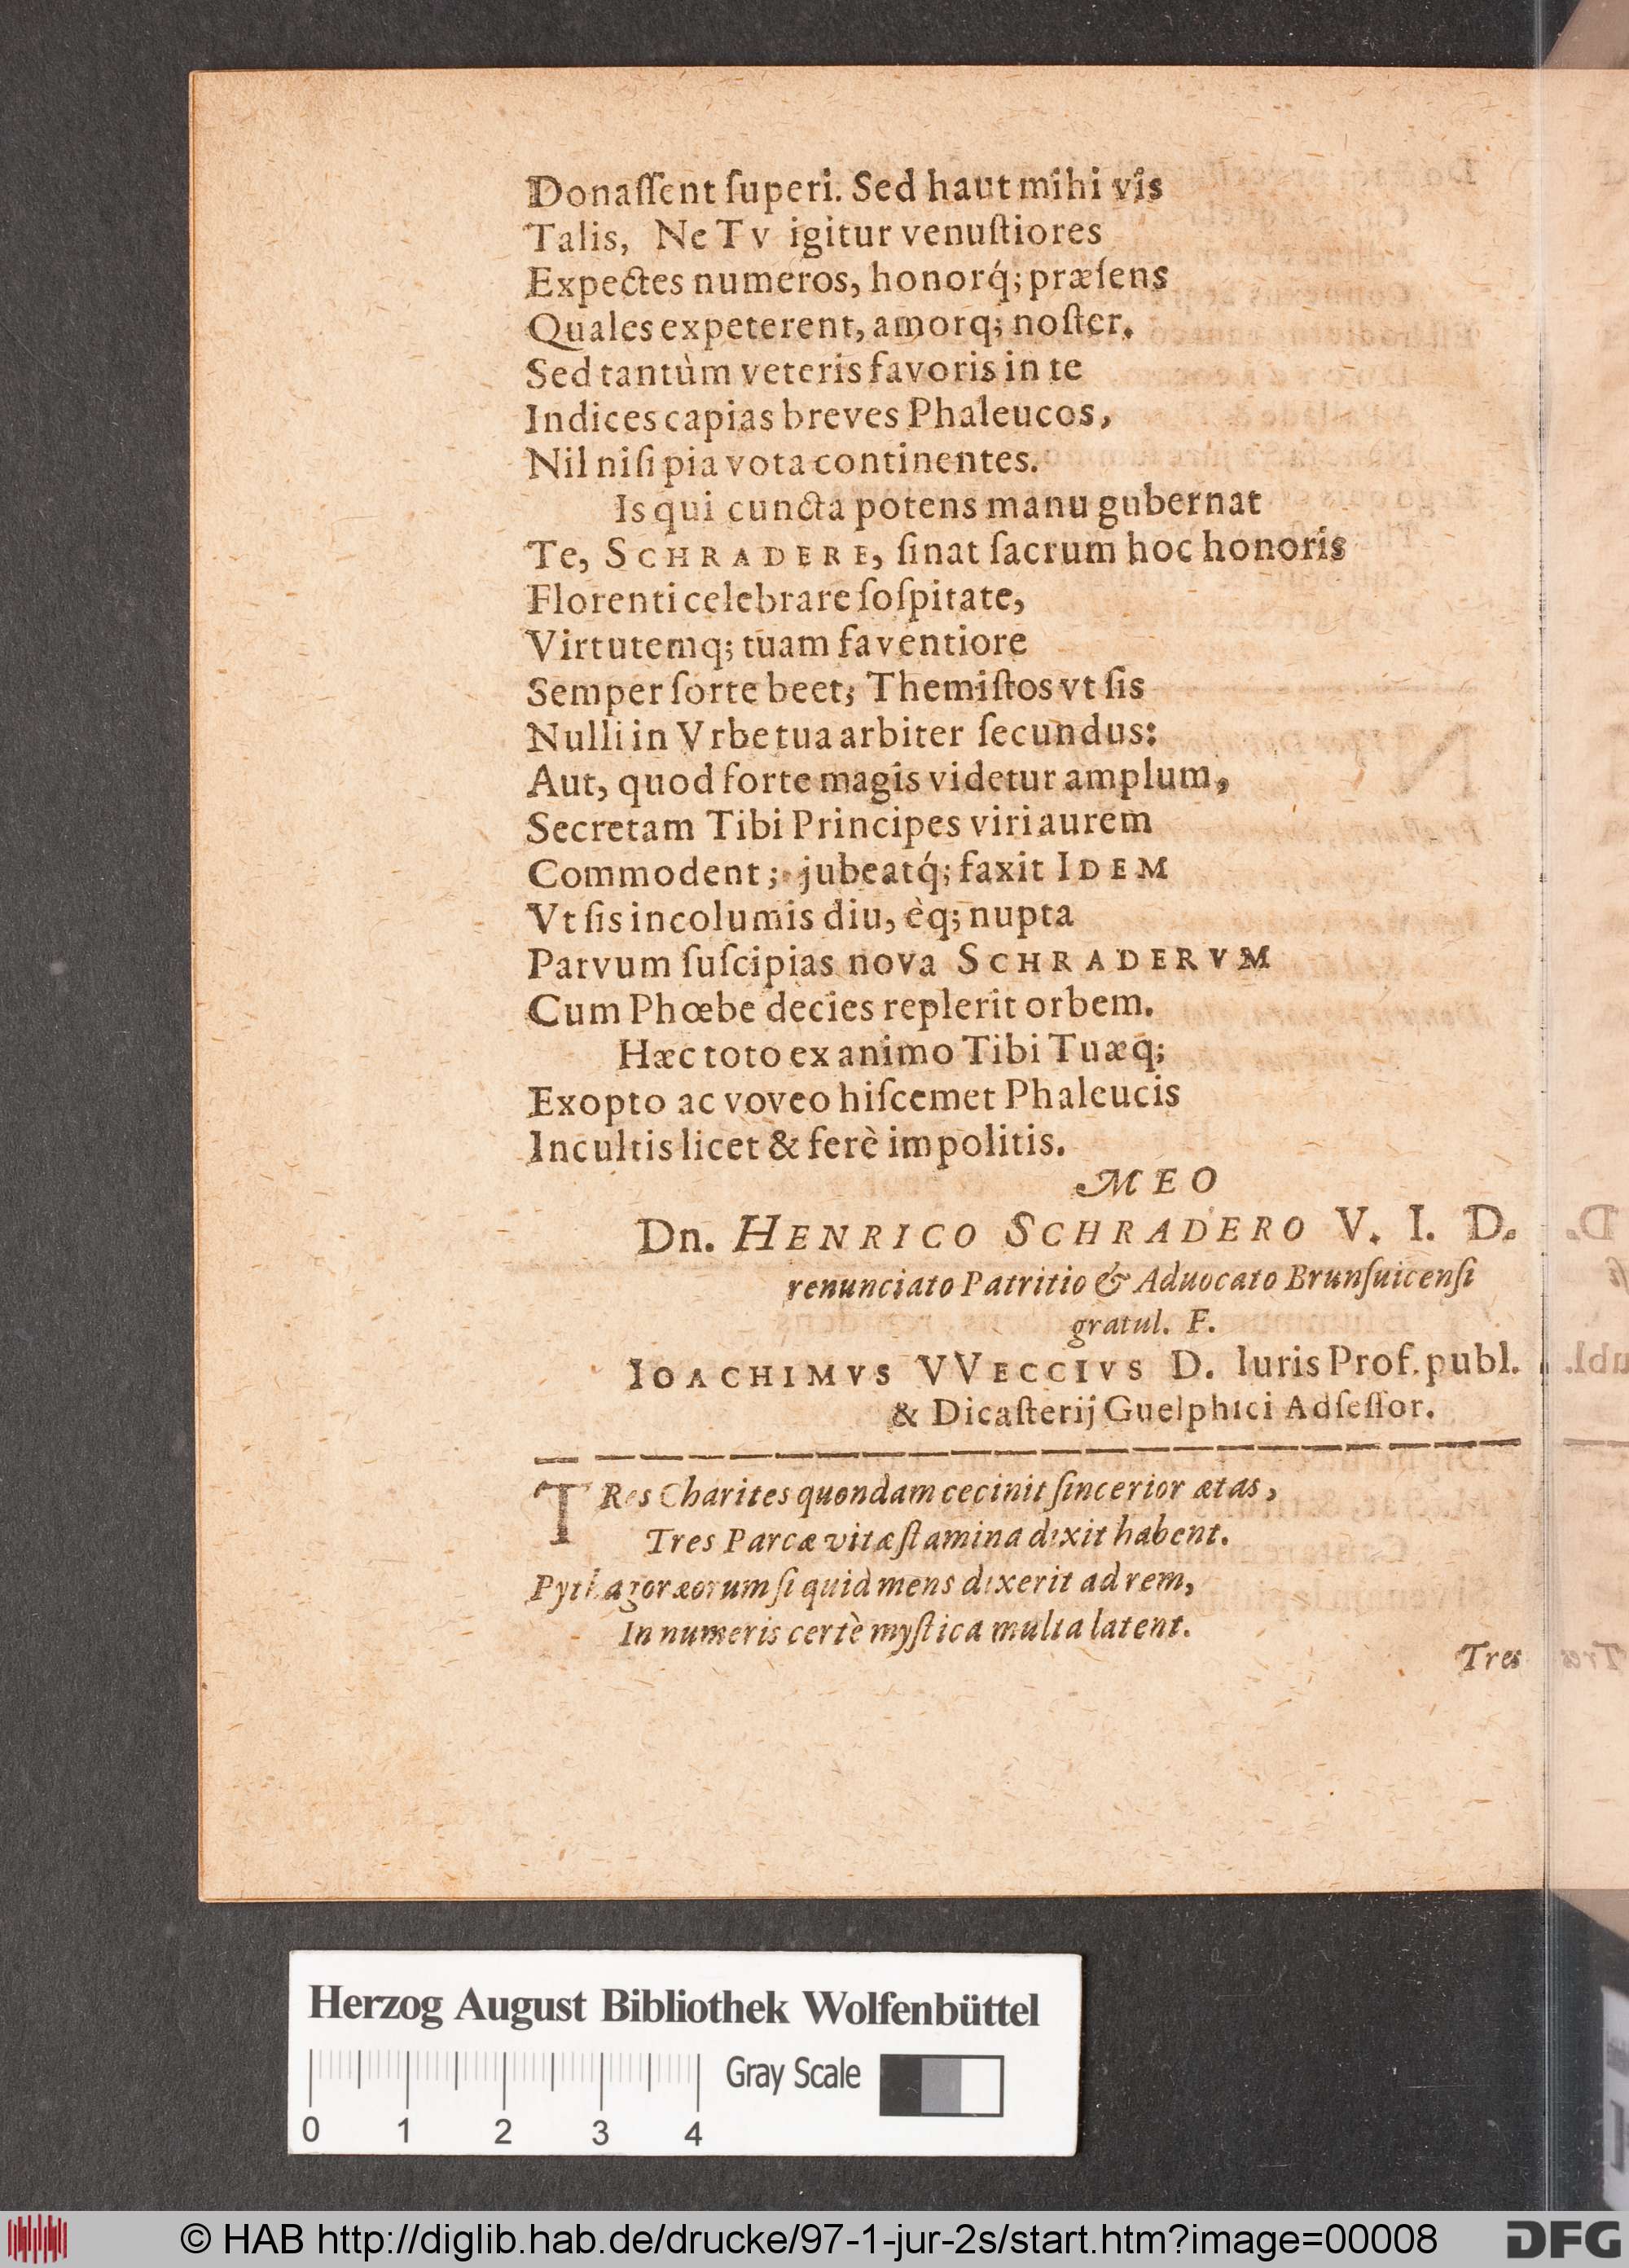 Donaſſent ſuperi. Sed haut mihi vis
Talis, Ne Tv igitur venuſtiores
Expectes numeros, honorq́; præſens
Quales expeterent, amorq; noſter.
Sed tantùm veteris favoris in te
Indices capias breves Phaleucos,
Nil niſi pia vota continentes.
Is qui cuncta potens manu gubernat
Te, SCHRADERE, ſinat ſacrum hoc honoris
Florenti celebrare ſoſpitate,
Virtutemq; tuam faventiore
Semper ſorte beet; Themiſtos vt ſis
Nulli in Vrbe tua arbiter ſecundus:
Aut, quod forte magis videtur amplum,
Secretam Tibi Principes viri aurem
Commodent; jubeatq́; faxit IDEM
Vt ſis incolumis diu, èq; nupta
Parvum ſuſcipias nova SCHRADERVM
Cum Phœbe decies replerit orbem.
Hæc toto ex animo Tibi Tuæq;
Exopto ac voveo hiſcemet Phaleucis
Incultis licet & ferè impolitis.
MEO
Dn. HENRICO SCHRADERO V. I. D.
renunciato Patritio & Aduocato Brunſuicenſi
gratul. F.
IOACHIMVS VVECCIVS D. Iuris Prof. publ.
& Dicaſterij Guelphici Adſeſſor.
TRes Charites quondam cecinit ſincerior ætas,
Tres Parcæ vitæ ſtamina dixit habent.
Pythagoræorum ſi quid mens dixerit ad rem,
In numeris certè myſtica multa latent.
Tres
Herzog August Bibliothek Wolfenbüttel
Gray Scale
0 1 2 3 4
© HAB http://diglib.hab.de/drucke/97-1-jur-2s/start.htm?image=00008
DFG